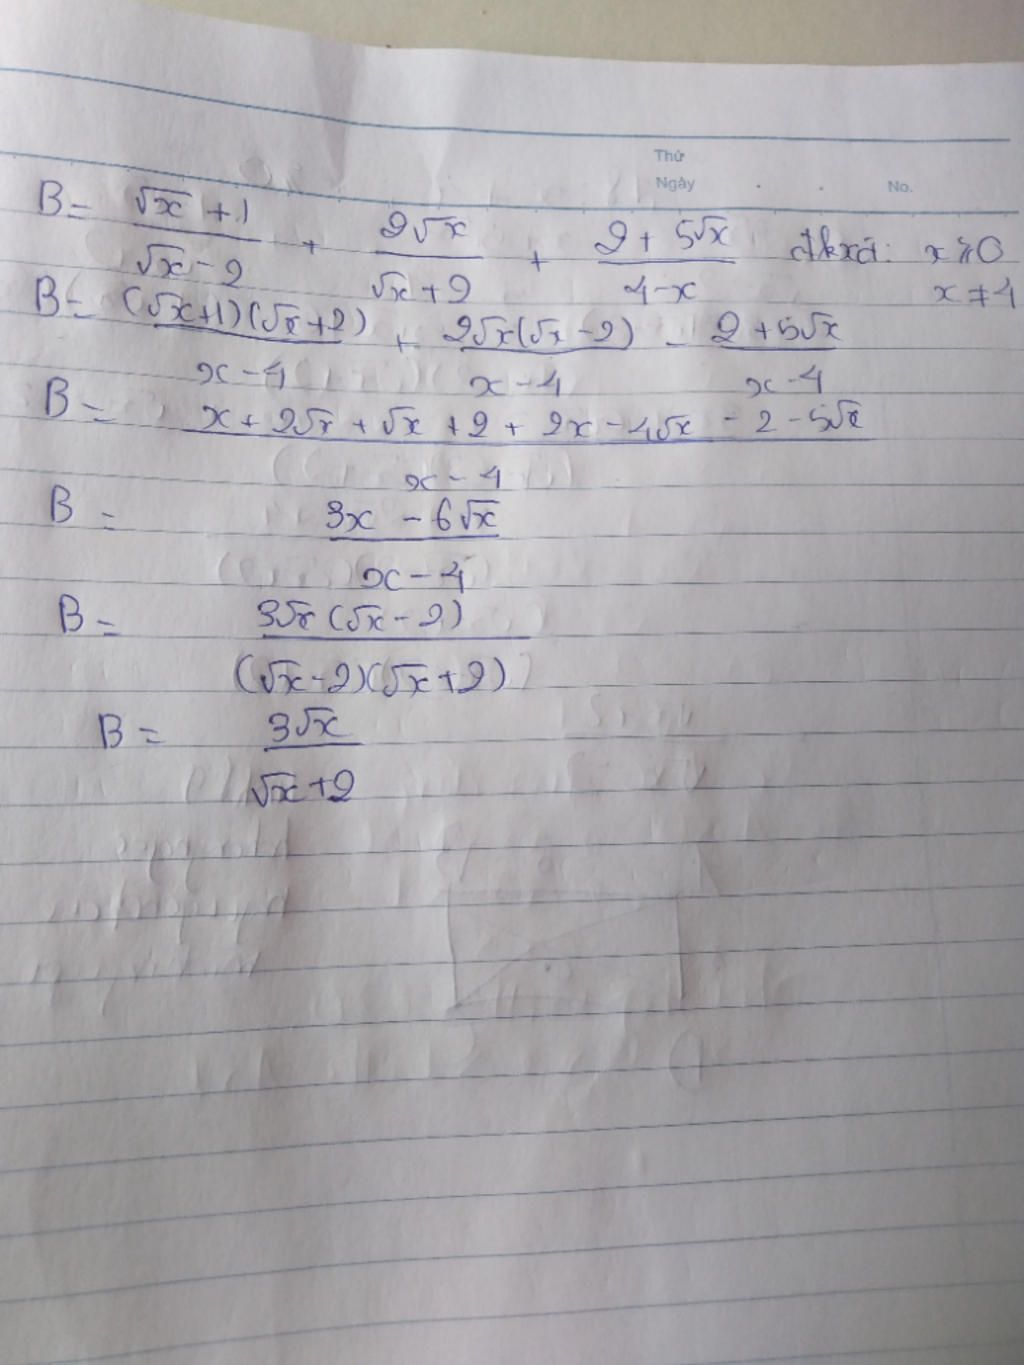 Thứ
Ngày . . No.
B = (√x + 1)/(√x - 2) + 2√x/(√x + 2) + (2 + 5√x)/(4 - x) đkxđ: x ⩾ 0
x ≠ 4
B = (√x+1)(√x+2)/(x - 4) + 2√x(√x - 2)/(x - 4) - (2 + 5√x)/(x - 4)
B = (x + 2√x + √x + 2 + 2x - 4√x - 2 - 5√x)/(x - 4)
B = (3x - 6√x)/(x - 4)
B = 3√x(√x - 2)/(√x - 2)(√x + 2)
B = 3√x/(√x + 2)